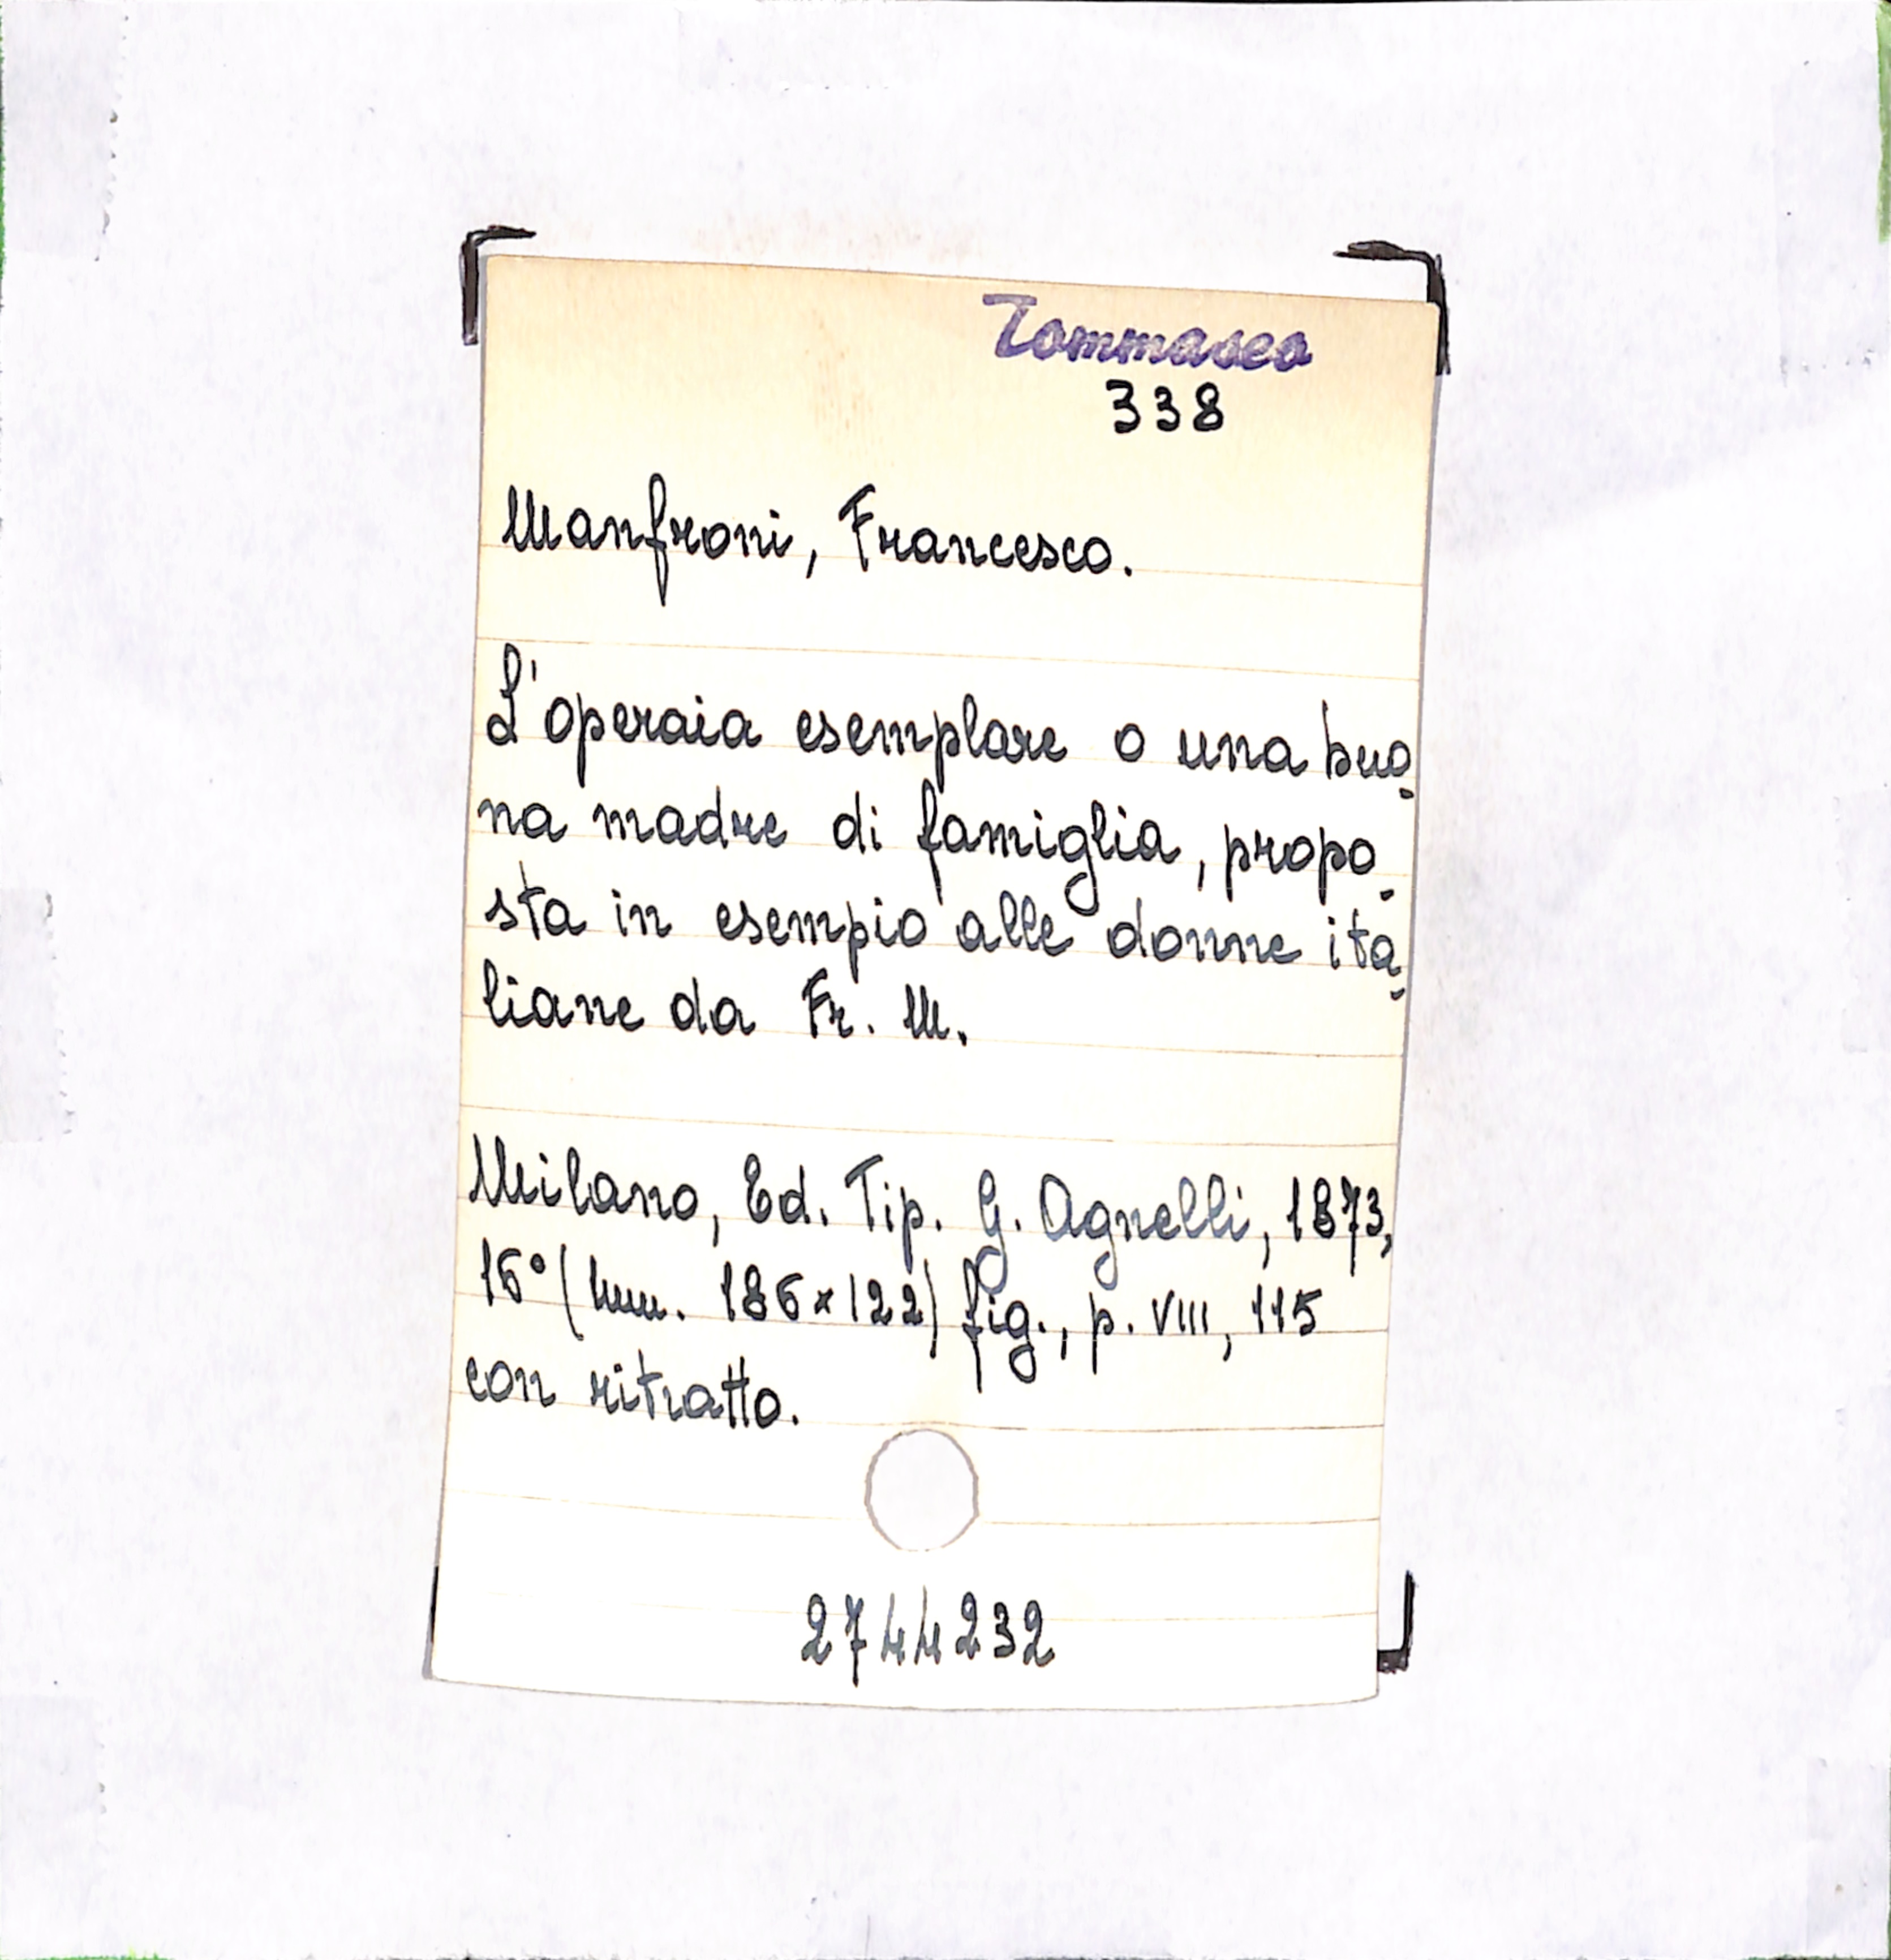 Tommaseo
338
Manfroni, Francesco.
L'operaia esemplare o una buo-
na madre di famiglia, propo-
sta in esempio alle donne ita-
liane da Fr. M.
Milano, Ed. Tip. G. Agnelli, 1873,
16° (mm. 186x122) fig., p. VIII, 115
con ritratto.
2744232